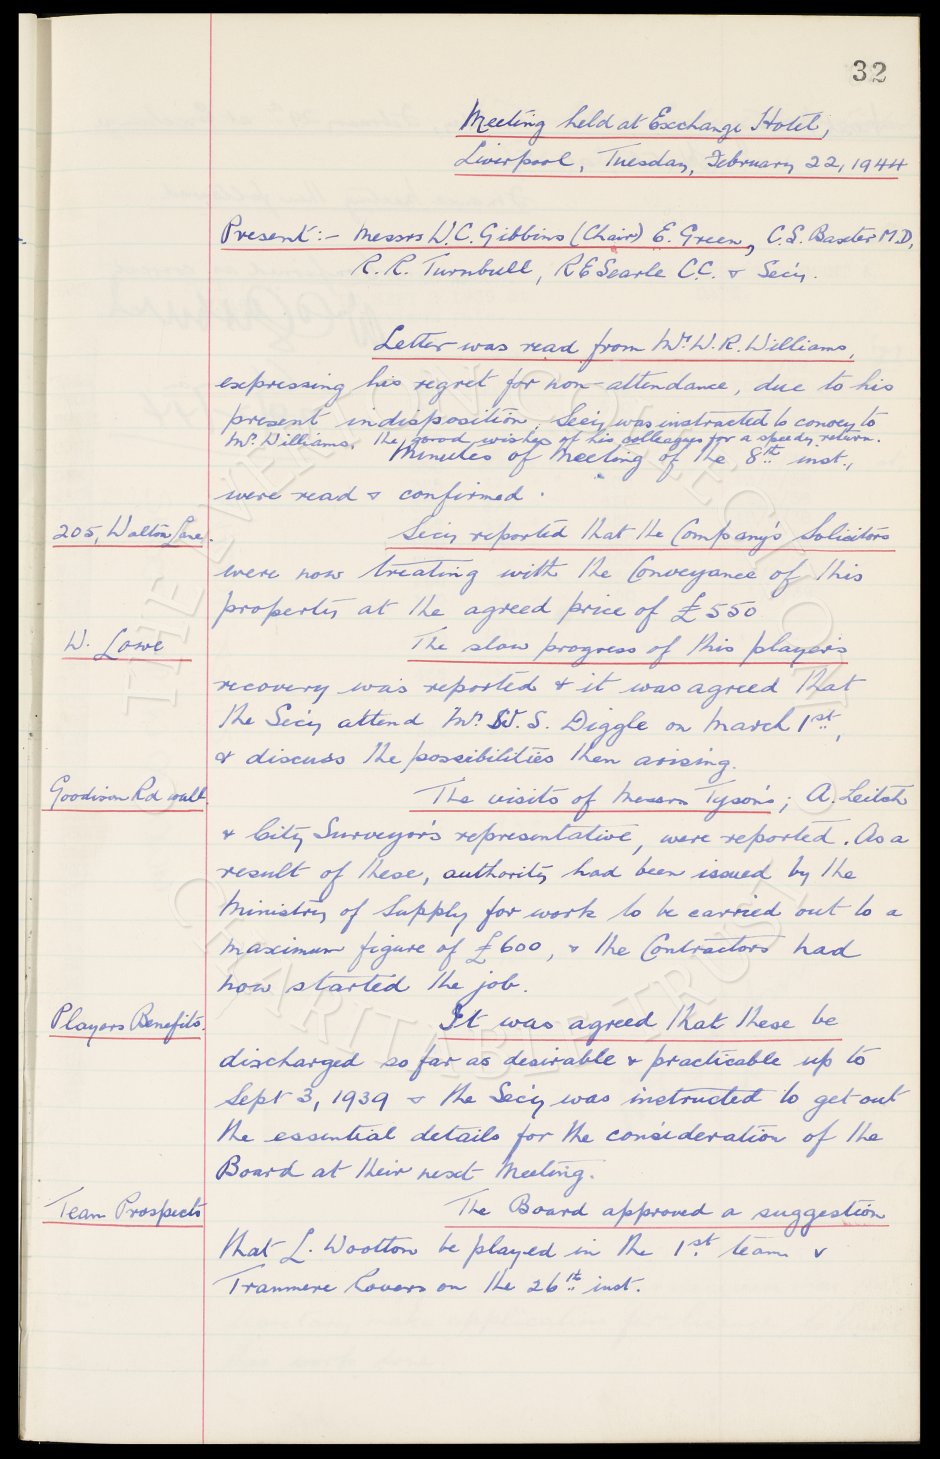 32
Meeting held at Exchange Hotel,
Liverpool, Tuesday, February 22, 1944
Present:- Messrs W.C. Gibbins (Chair) E. Green, C.S. Baxter M.D,
R.R. Turnbull, R E Searle C.C. & Secy.
Letter was read from Mr. W.R. Williams,
expressing his regret for non-attendance, due to his
present indisposition. Secy was instructed to convey to
Mr. Williams, the good wishes of his colleagues for a speedy return.
Minutes of Meeting of the 8th inst.,
were read & confirmed.
205, Walton Lane. Secy reported that the Company's Solicitors
were now treating with the Conveyance of this
property at the agreed price of £550
W. Lowe The slow progress of this player's
recovery was reported & it was agreed that
the Secy attend Mr. W.S. Diggle on March 1st,
& discuss the possibilities then arising.
Goodison Rd wall. The visits of Messrs Tyson's; A. Leitch
& City Surveyor's representative, were reported. As a
result of these, authority had been issued by the
Ministry of Supply for work to be carried out to a
maximum figure of £600, & the Contractors had
now started the job.
Players Benefits. It was agreed that these be
discharged so far as desirable & practicable up to
Sept 3, 1939 & the Secy was instructed to get out
the essential details for the consideration of the
Board at their next Meeting.
Team Prospects The Board approved a suggestion
that L. Wootton be played in the 1st team v
Tranmere Rovers on the 26th inst.
THE EVERTON COLLECTION
CHARITABLE TRUST